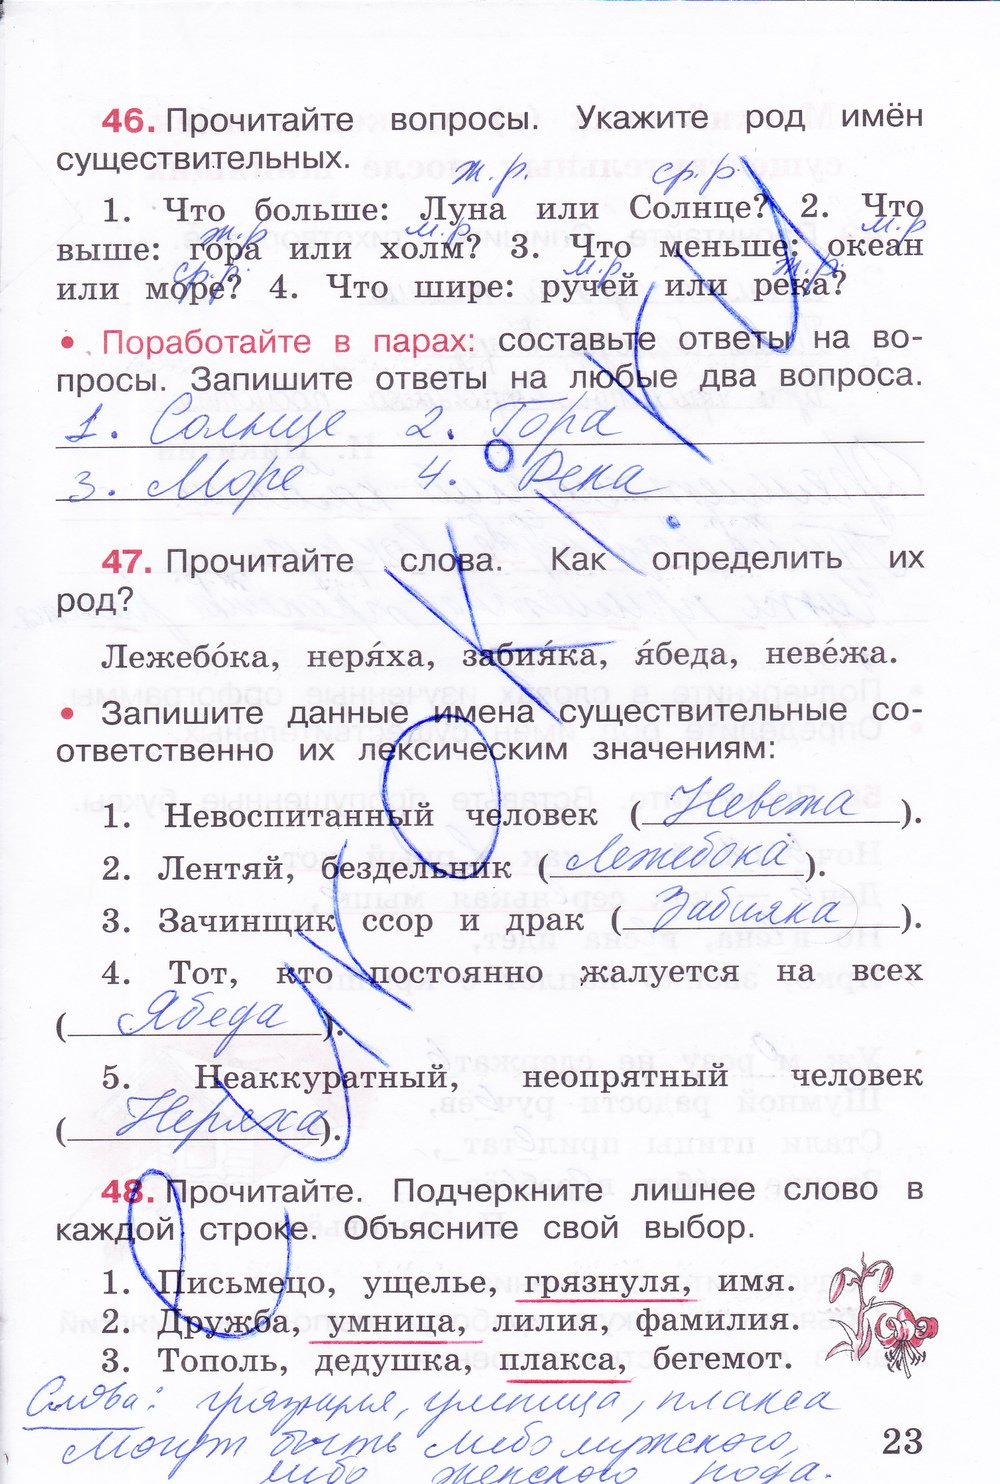 46. Прочитайте вопросы. Укажите род имён
существительных.
ж.р. ср.р.
1. Что больше: Луна или Солнце? 2. Что
ж.р м.р м.р
выше: гора или холм? 3. Что меньше: океан
ср.р. м.р. ж.р.
или море? 4. Что шире: ручей или река?
• Поработайте в парах: составьте ответы на во-
просы. Запишите ответы на любые два вопроса.
1. Солнце 2. Гора
3. Море 4. Река
47. Прочитайте слова. Как определить их
род?
Лежебо́ка, неря́ха, забия́ка, я́беда, неве́жа.
• Запишите данные имена существительные со-
ответственно их лексическим значениям:
1. Невоспитанный человек (Невежа).
2. Лентяй, бездельник (Лежебока).
3. Зачинщик ссор и драк (Забияка).
4. Тот, кто постоянно жалуется на всех
(Ябеда).
5. Неаккуратный, неопрятный человек
(Неряха).
48. Прочитайте. Подчеркните лишнее слово в
каждой строке. Объясните свой выбор.
1. Письмецо, ущелье, грязнуля, имя.
2. Дружба, умница, лилия, фамилия.
3. Тополь, дедушка, плакса, бегемот.
Слова: грязнуля, умница, плакса
могут быть либо мужского,
либо женского рода.
23